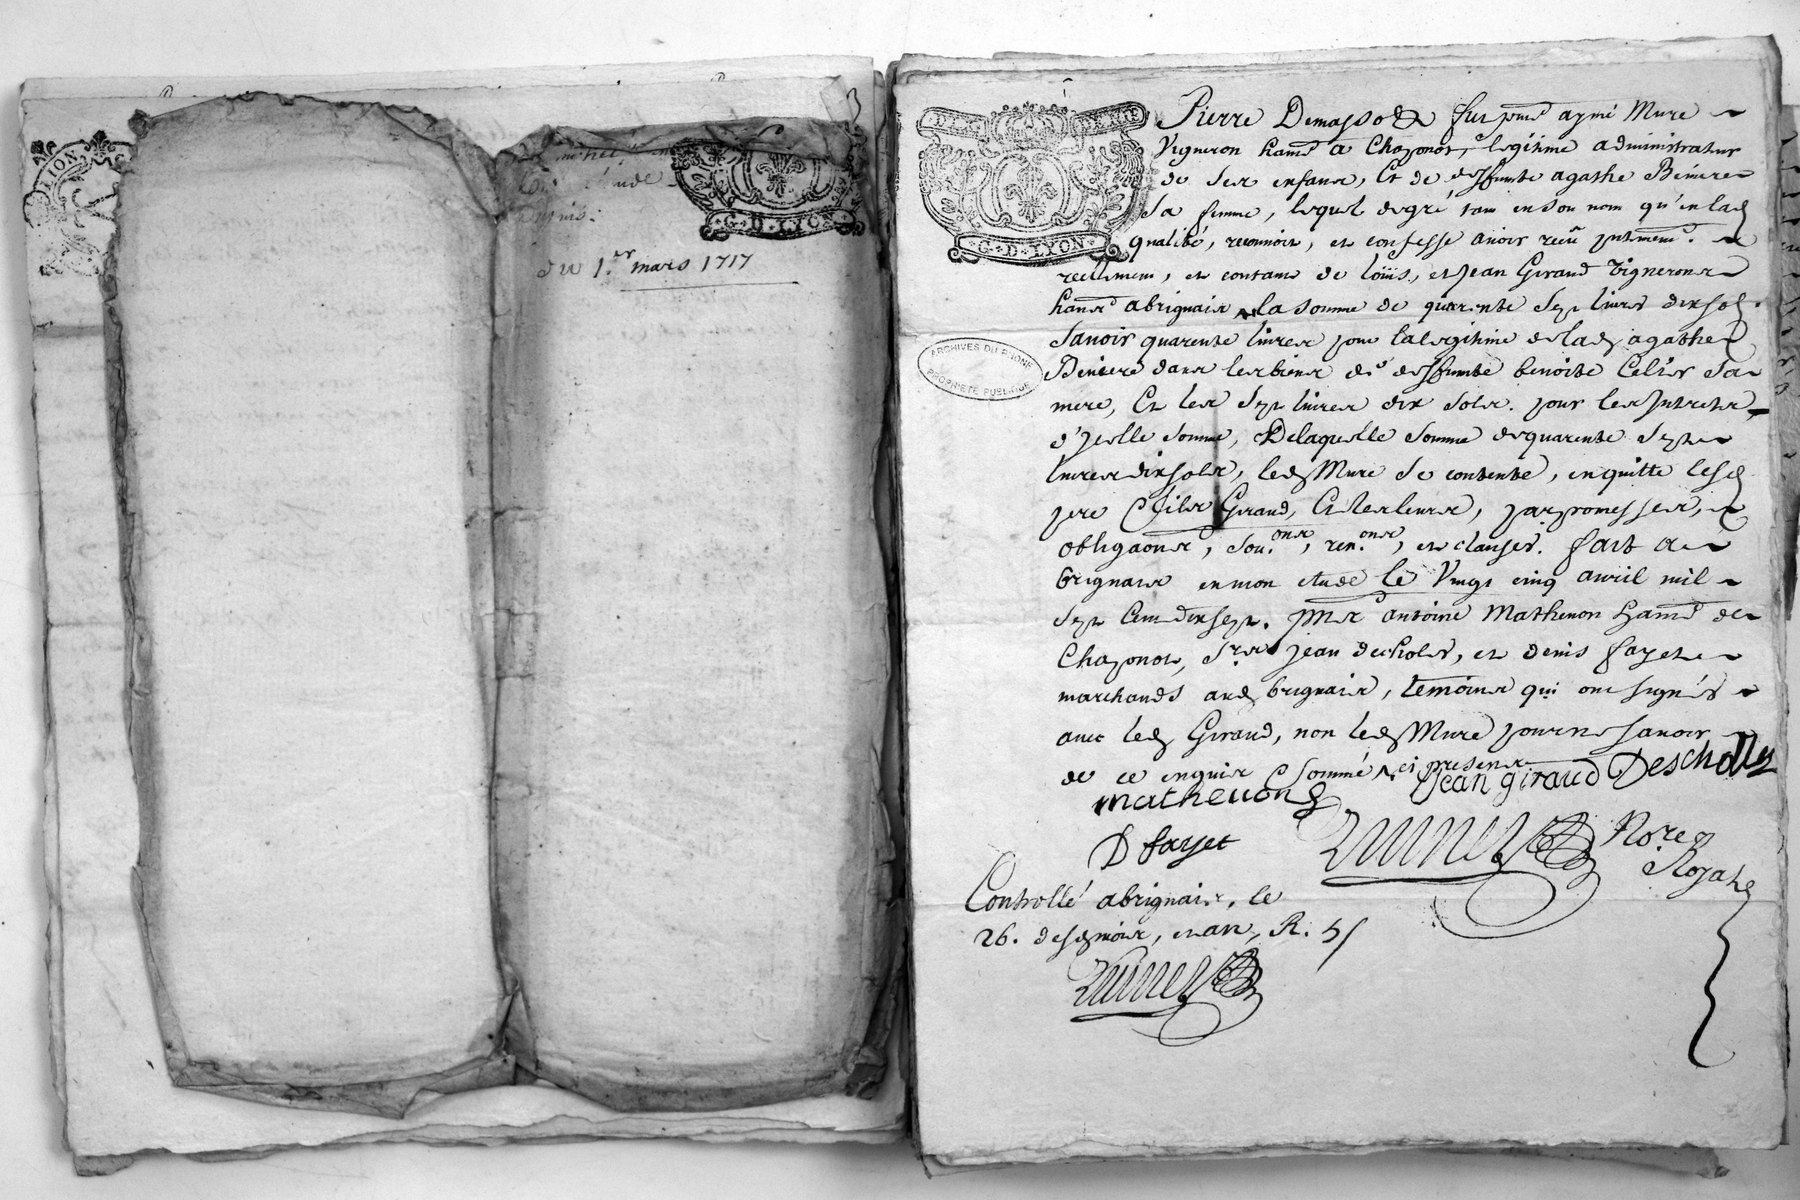 LION
G·D·LYON
du 1.er mars 1717
G·D·LYON
ARCHIVES DU RHONE
PROPRIÉTÉ PUBLIQUE
Pierre aymé Mure
Vigneron a Chaponot, legitime administrateur
de ses enfans, Et de deffunte agathe Beniere
sa femme, lequel degré tant en son nom qu'en lad
qualité, reconnoit, et confesse avoir reçû
reellement, et contant de loüis, et Jean Giraud Vignerons
abrignais, la somme de quarente sept livres dix sols
Savoir quarente livres pour la legitime de lad agathe
Beniere dans les biens de deffunte benoite Celier sa
mere, Et les sept livres dix sols. pour les Intrets
d'Jcelle somme, De laquelle somme de quarente sept
livres dix sols, led Mure se contente, en quitte lesd
pere & fils Giraud, Et les leurs, par promesses,
obligaons, sou.ons, ren.ons, et clauses. fait a
brignais en mon etude le Vingt cinq avril mil
sept Cent dix sept. antoine Mathevon de
Chaponot, Jean deschols, et denis fayet
marchands aud brignais, temoins qui ont signés
avec led Giraud, non led Mure pour ne savoir
de ce enquis & sommé
Jean giraud
mathevon
D fayet
No.re
Royal
Controllé abrignais, le
26. desd mois, et an, R.